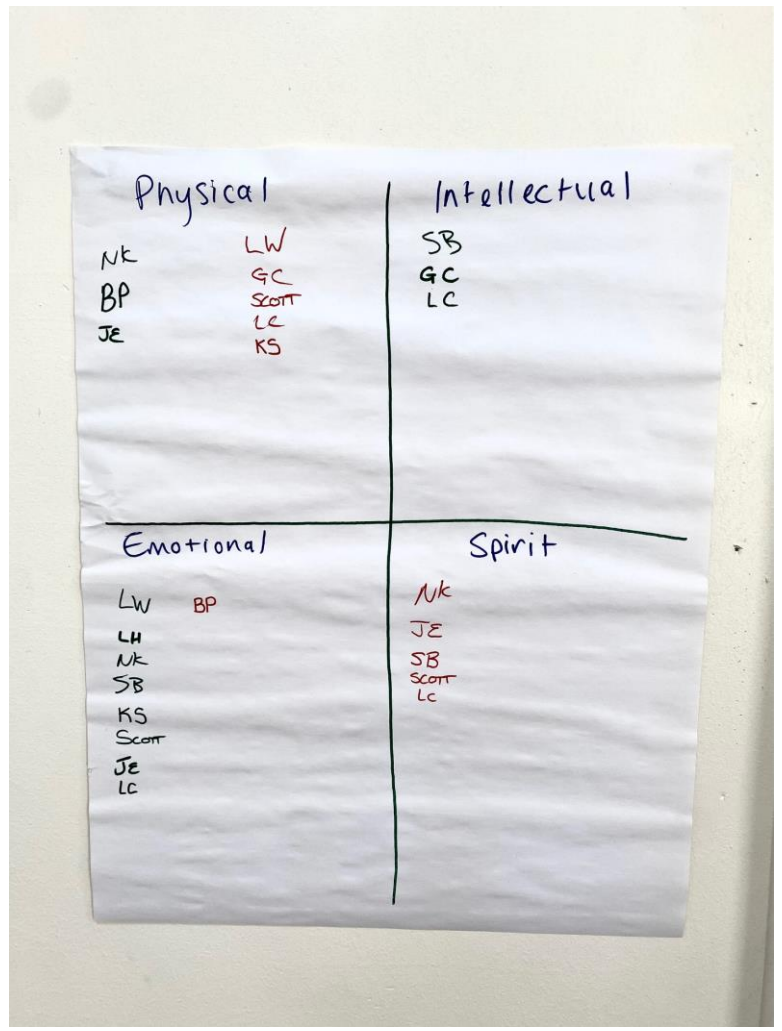 Physical
NK
BP
JE
LW
GC
SCOTT
LC
KS
Intellectual
SB
GC
LC
Emotional
LW
LH
NK
SB
KS
SCOTT
JE
LC
BP
Spirit
NK
JE
SB
SCOTT
LC